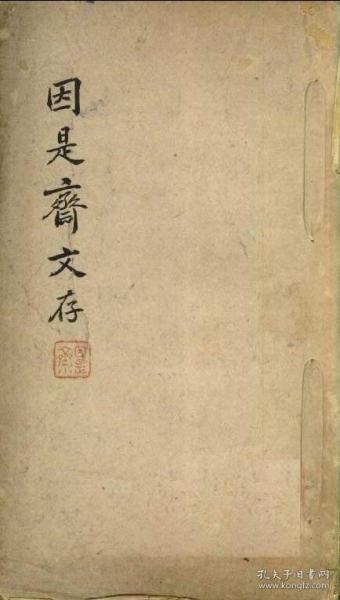 因是齋文存
孔夫子旧书网
www.kongfz.com